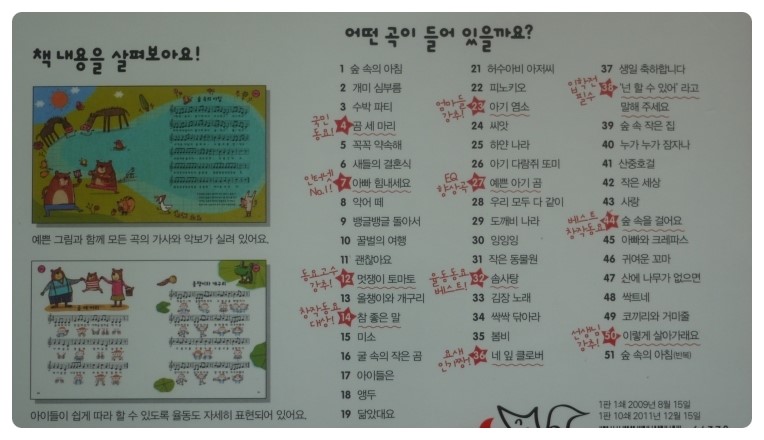 책 내용을 살펴보아요!
예쁜 그림과 함께 모든 곡의 가사와 악보가 실려 있어요.
올챙이와 개구리
아이들이 쉽게 따라 할 수 있도록 율동도 자세히 표현되어 있어요.
어떤 곡이 들어 있을까요?
1 숲 속의 아침
2 개미 심부름
3 수박 파티
국민 동요!
4 곰 세 마리
5 꼭꼭 약속해
6 새들의 결혼식
인터넷 No.1!
7 아빠 힘내세요
8 악어 떼
9 뱅글뱅글 돌아서
10 꿀벌의 여행
11 괜찮아요
동요 고수 강추!
12 멋쟁이 토마토
13 올챙이와 개구리
창작동요 대상!
14 참 좋은 말
15 미소
16 굴 속의 작은 곰
17 아이들은
18 앵두
19 닮았대요
21 허수아비 아저씨
22 피노키오
엄마들 강추!
23 아기 염소
24 씨앗
25 하얀 나라
26 아기 다람쥐 또미
EQ 향상곡
27 예쁜 아기 곰
28 우리 모두 다 같이
29 도깨비 나라
30 잉잉잉
31 작은 동물원
율동동요 베스트!
32 솜사탕
33 김장 노래
34 싹싹 닦아라
35 봄비
요새 인기짱!
36 네 잎 클로버
37 생일 축하합니다
입학전 필수
38 '넌 할 수 있어' 라고
말해 주세요
39 숲 속 작은 집
40 누가 누가 잠자나
41 산중호걸
42 작은 세상
43 사랑
베스트 창작동요
44 숲 속을 걸어요
45 아빠와 크레파스
46 귀여운 꼬마
47 산에 나무가 없으면
48 싹트네
49 코끼리와 거미줄
선생님 강추!
50 이렇게 살아가래요
51 숲 속의 아침(반복)
1판 1쇄 2009년 8월 15일
1판 10쇄 2011년 12월 15일